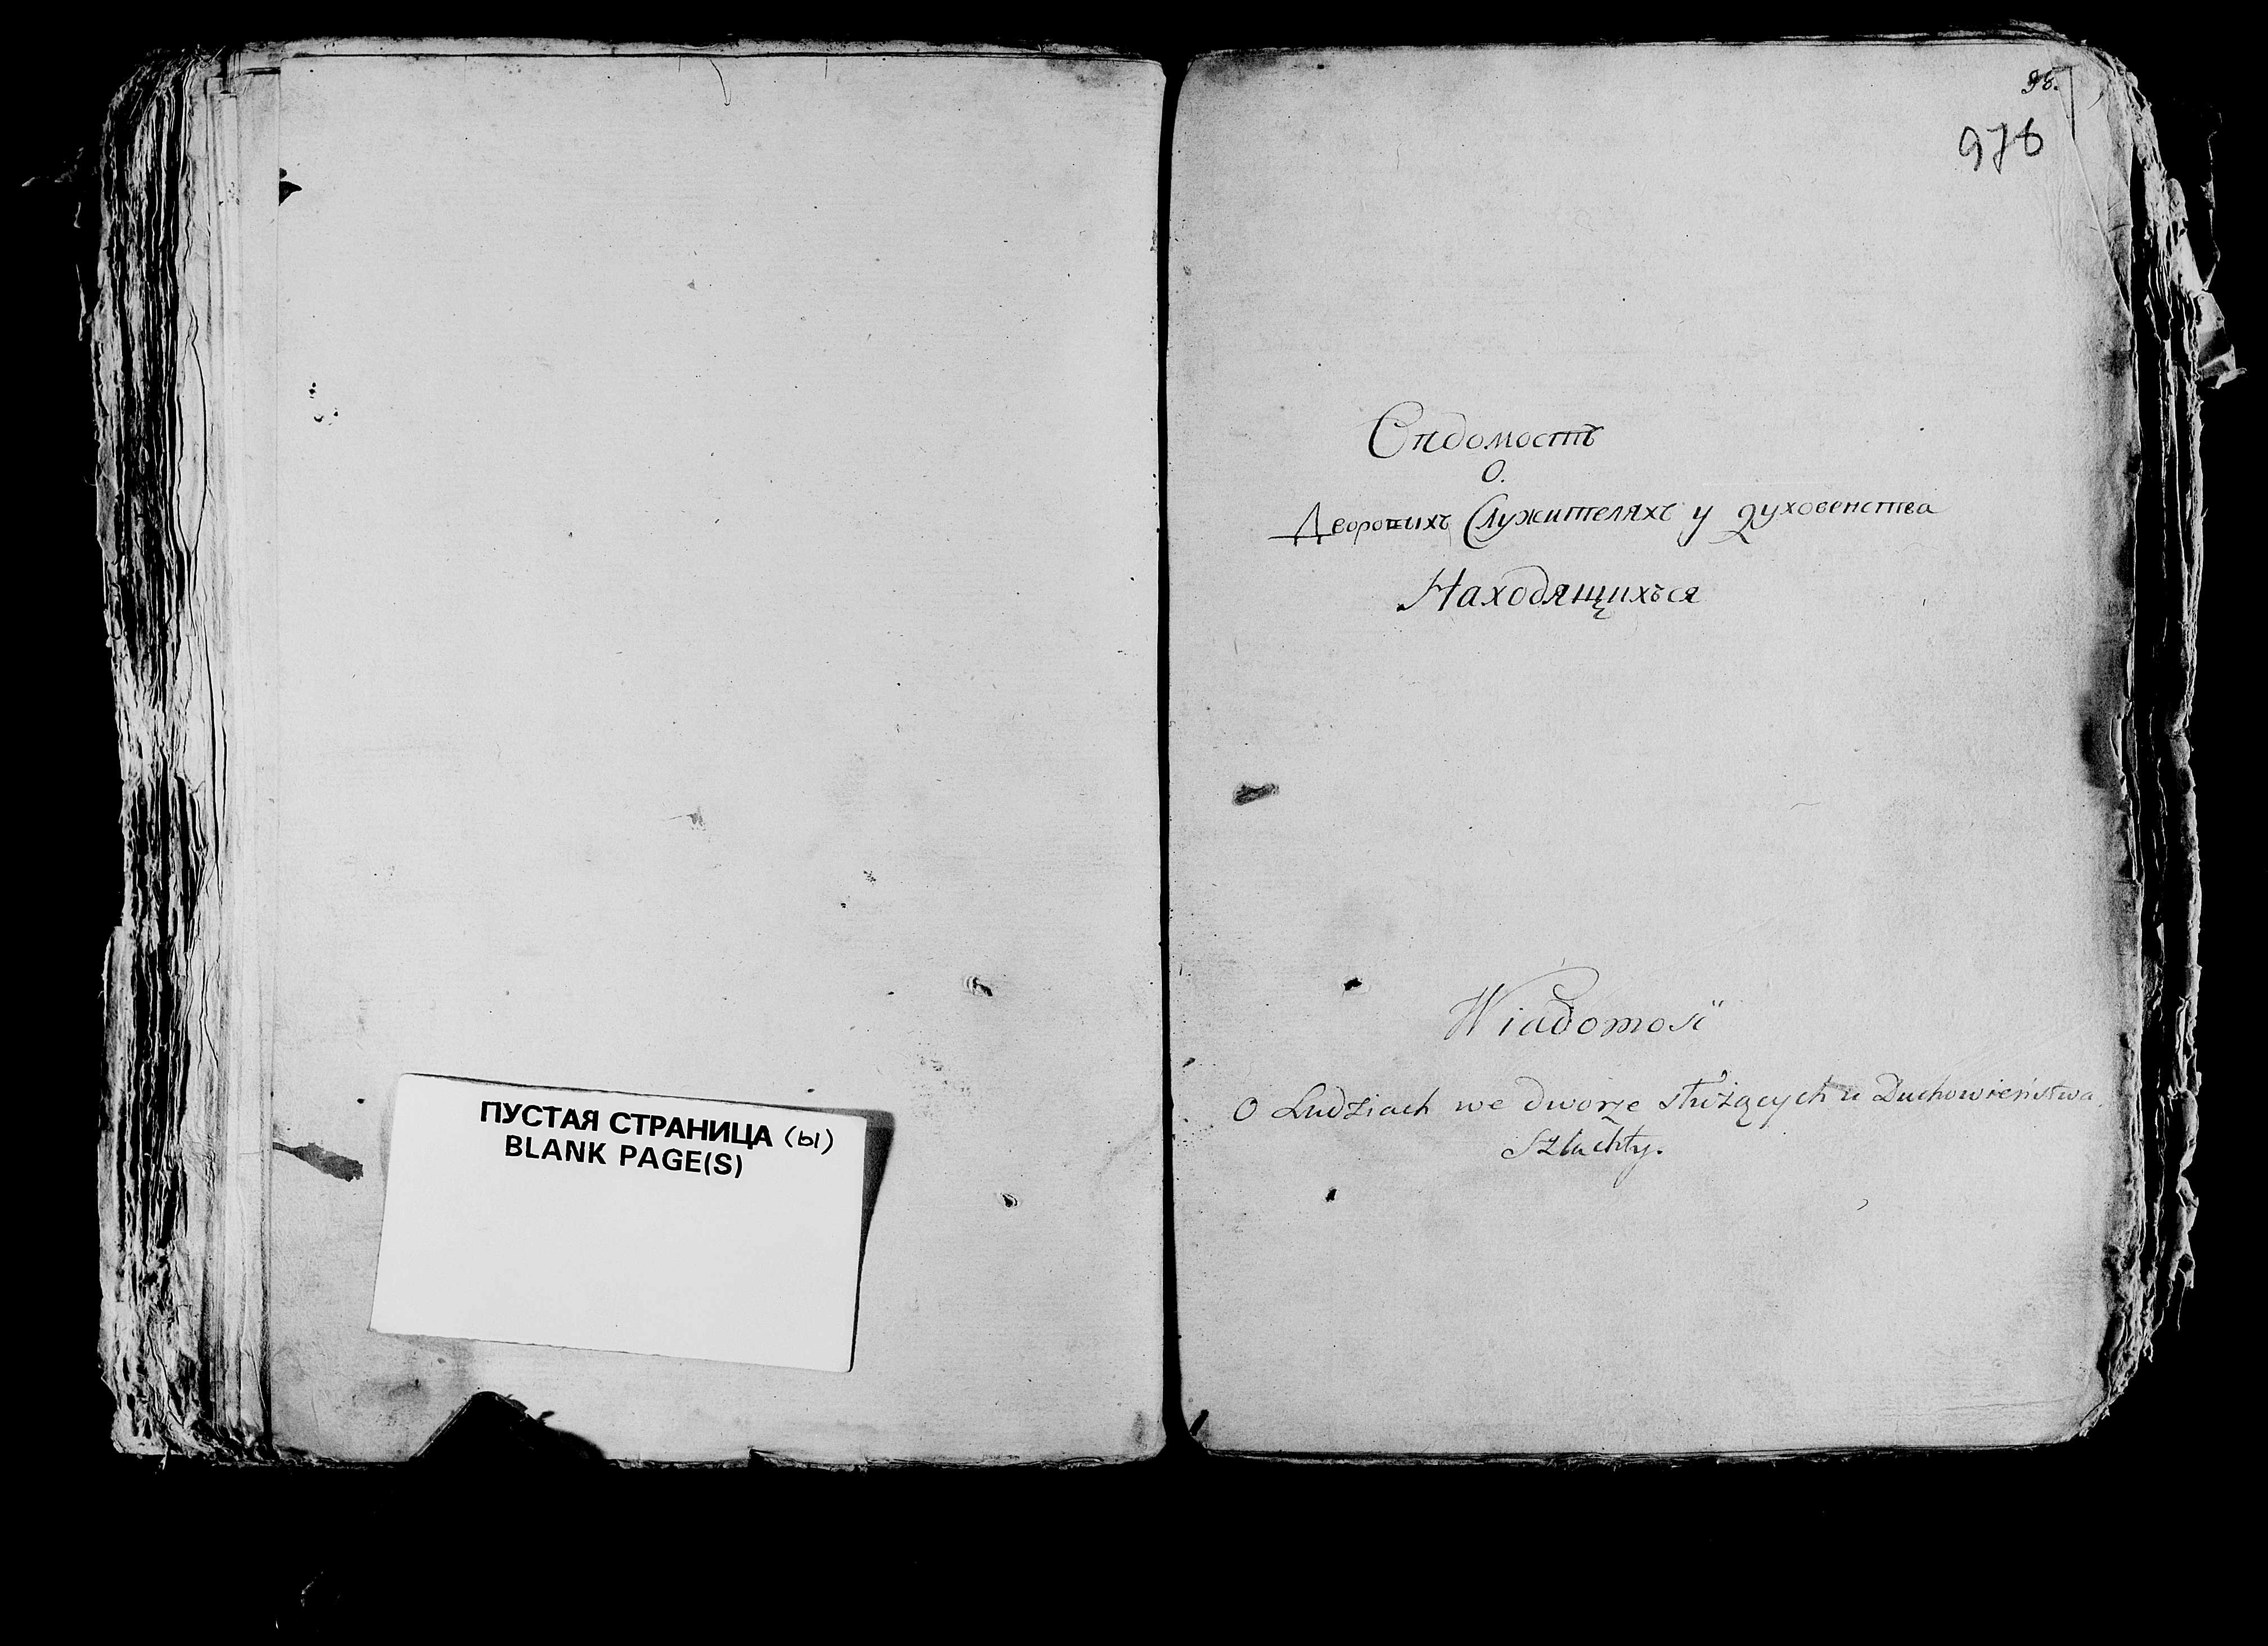 ПУСТАЯ СТРАНИЦА (ы)
BLANK PAGE(S)
98.
978
Вѣдомость
О.
Дворовыхъ Служителяхъ у духовенства
Находящихъся
Wiadomość
O Ludziach we dworze służących u Duchowieństwa,
Szlachty.